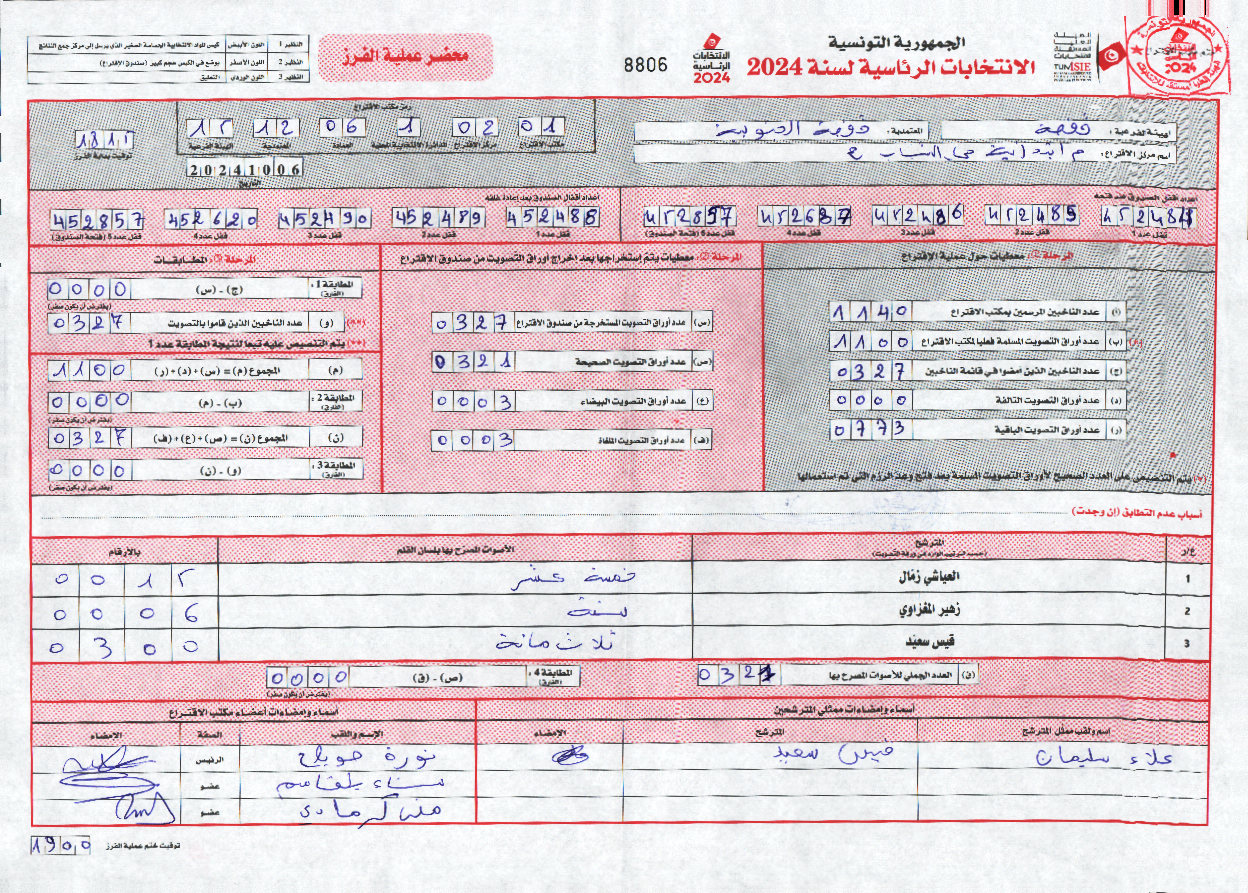 الجمهورية التونسية
الانتخابات الرئاسية لسنة 2024
الهيئة العليا المستقلة للانتخابات
TUNISIE
الانتخابات الرئاسية 2024
8806
محضر عملية الفرز
النظير 1 اللون الأبيض كيس المواد الانتخابية الحساسة الصغير الذي يرسل إلى مركز جمع النتائج
النظير 2 اللون الأصفر يوضع في الكيس حجم كبير (صندوق الاقتراع)
النظير 3 اللون الوردي التعليق
الهيئة الفرعية: قفصة المعتمدية: قفصة الجنوبية
اسم مركز الاقتراع: م ابتدائية حي الشباب
رمز مكتب الاقتراع
01 02 1 06 12 15
مكتب الاقتراع مركز الاقتراع الدائرة الانتخابية المحلية العمادة المعتمدية الهيئة الفرعية
توقيت بداية الفرز
20241006
التاريخ
أعداد أقفال الصندوق عند فتحه
452485 452857
قفل عدد 1 قفل عدد 2 قفل عدد 3 قفل عدد 4 قفل عدد 5 (فتحة الصندوق)
أعداد أقفال الصندوق بعد إعادة غلقه
452488 452489 452490 452620 452857
قفل عدد 1 قفل عدد 2 قفل عدد 3 قفل عدد 4 قفل عدد 5 (فتحة الصندوق)
المرحلة 1: معطيات حول عملية الاقتراع
(أ) عدد الناخبين المرسمين بمكتب الاقتراع 1140
(ب) عدد أوراق التصويت المسلمة فعليا لمكتب الاقتراع 1100
(ج) عدد الناخبين الذين أمضوا في قائمة الناخبين 0327
(د) عدد أوراق التصويت التالفة 0000
(ر) عدد أوراق التصويت الباقية 0773
(*) يتم التنصيص على العدد الصحيح لأوراق التصويت المسلمة بعد فتح وعد الرزم التي تم استعمالها
المرحلة 2: معطيات يتم استخراجها بعد إخراج أوراق التصويت من صندوق الاقتراع
(س) عدد أوراق التصويت المستخرجة من صندوق الاقتراع 0327
(ص) عدد أوراق التصويت الصحيحة 0321
(ع) عدد أوراق التصويت البيضاء 0003
(ف) عدد أوراق التصويت الملغاة 0003
المرحلة 3: المطابقات
المطابقة 1: (الفارق) (ج) - (س) 0000
(يفترض أن يكون صفر)
(**) (و) عدد الناخبين الذين قاموا بالتصويت 0327
(**) يتم التنصيص عليه تبعا لنتيجة المطابقة عدد 1
(م) المجموع (م) = (س) + (د) + (ر) 1100
المطابقة 2: (الفارق) (ب) - (م) 0000
(يفترض أن يكون صفر)
(ن) المجموع (ن) = (ص) + (ع) + (ف) 0327
المطابقة 3: (الفارق) (و) - (ن) 0000
(يفترض أن يكون صفر)
أسباب عدم التطابق (إن وجدت)
ع/ر المترشح (حسب الترتيب الوارد في ورقة التصويت) الأصوات المصرح بها بلسان القلم بالأرقام
1 العياشي زمّال خمسة عشر 0015
2 زهير المغزاوي ستة 0006
3 قيس سعيّد ثلاث مائة 0300
(ق) العدد الجملي للأصوات المصرح بها 0321
المطابقة 4: (الفارق) (ص) - (ق) 0000
(يفترض أن يكون صفر)
أسماء وإمضاءات ممثلي المترشحين
اسم ولقب ممثل المترشح المترشح الإمضاء
علاء سليمان قيس سعيد
أسماء وإمضاءات أعضاء مكتب الاقتراع
الإسم واللقب الصفة الإمضاء
نورة الرئيس
سناء بلقاسم عضو
عضو
توقيت ختم عملية الفرز 1900